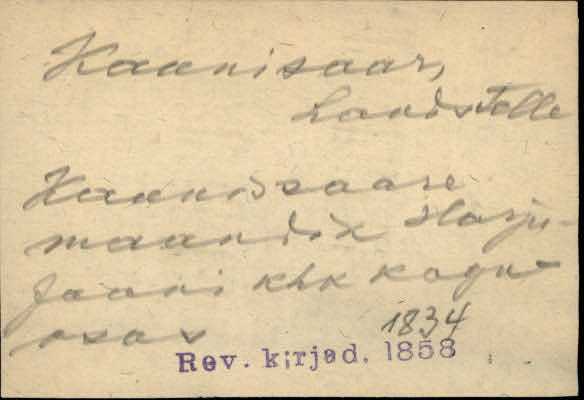 Kaunisaar,
Landstelle
Kaunissaare
maandix Harju-
Jaani khk kogu-
osas
1834
Rev. kirjad. 1858